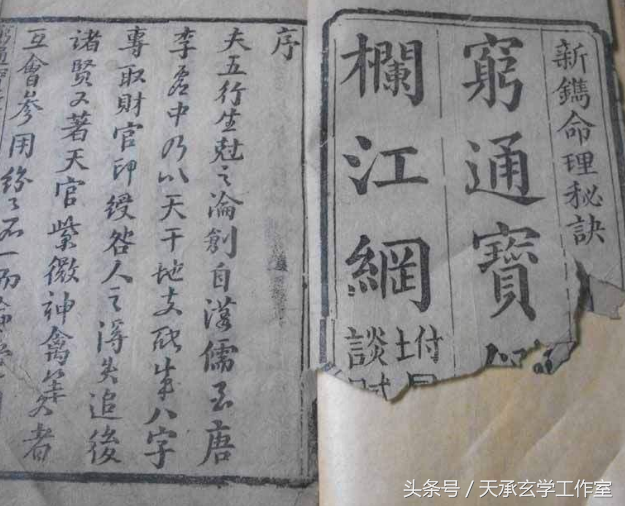 新鐫命理秘訣
窮通寶
欄江網
坿
談
序
夫五行生尅之淪創自漢儒至唐
李虛中乃以天干地支配成八字
專取財官印綬咎人之淂失追後
諸賢又著天官紫微神禽者
互會參用不一而
头条号/天承玄学工作室